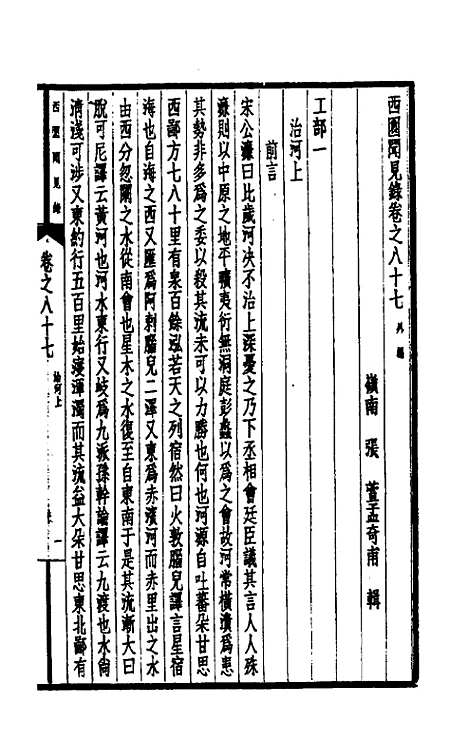 西園聞見錄卷之八十七 外編
嶺南 張 萱孟奇甫 輯
工部一
治河上
前言
宋公濂曰比歲河决不治上深憂之乃下丞相會廷臣議其言人人殊
濂則以中原之地平曠夷衍無洞庭彭蠡以爲之會故河常橫潰爲患
其勢非多爲之委以殺其流未可以力勝也何也河源自吐蕃朵甘思
西鄙方七八十里有泉百餘泓若天之列宿然曰火敦腦兒譯言星宿
海也自海之西又匯爲阿剌腦兒二澤又東爲赤濱河而赤里出之水
由西分忽闌之水從南會也里木之水復至自東南于是其流漸大曰
脫可尼譯云黃河也河水東行又岐爲九派孫幹論譯云九渡也水尙
淸淺可涉又東約行五百里始寖渾濁而其流益大朵甘思東北鄙有
西園聞見錄
卷之八十七
治河上
一